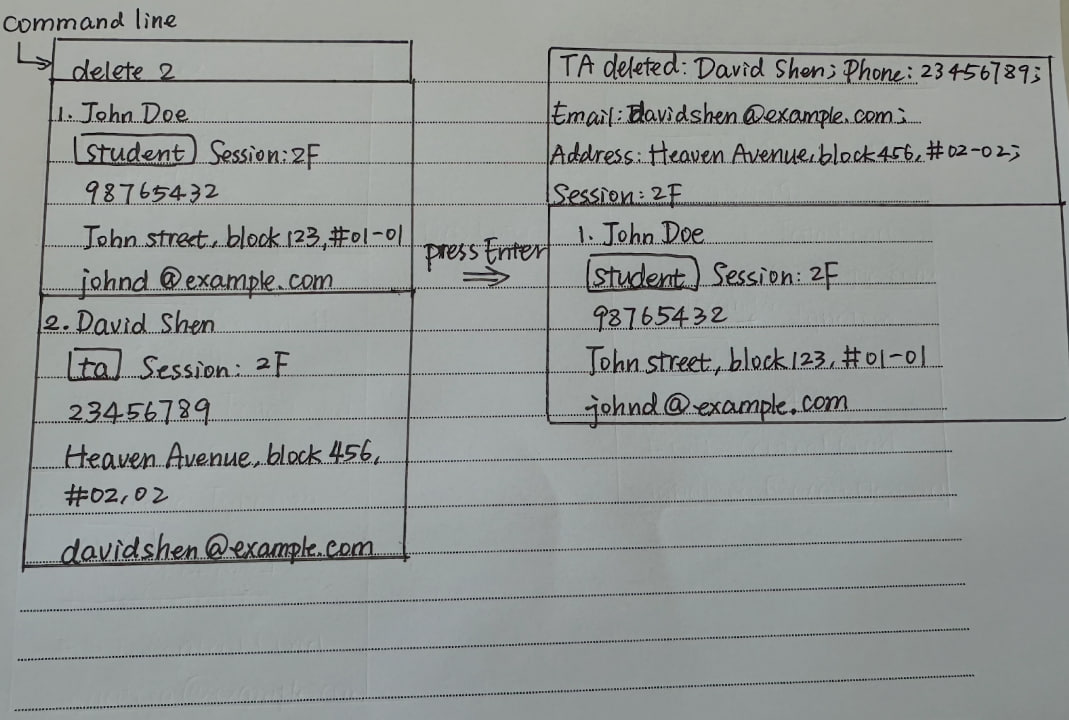 command line
delete 2
1. John Doe
student Session: 2F
98765432
John street, block 123, #01-01
johnd@example.com
2. David Shen
ta Session: 2F
23456789
Heaven Avenue, block 456,
#02,02
davidshen@example.com
press Enter
⇒
TA deleted: David Shen; Phone: 23456789;
Email: davidshen@example.com;
Address: Heaven Avenue, block 456, #02-02;
Session: 2F
1. John Doe
student Session: 2F
98765432
John street, block 123, #01-01
johnd@example.com